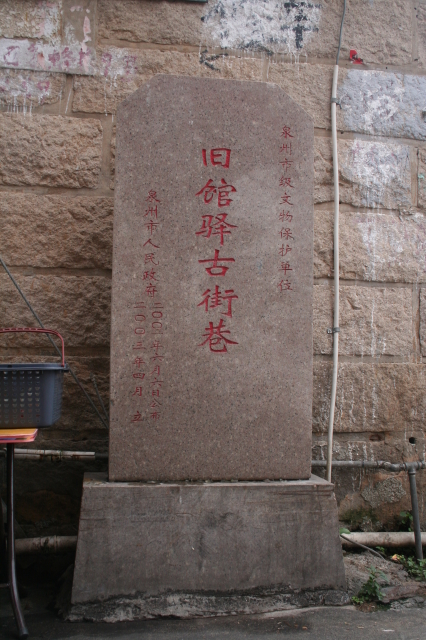 泉州市级文物保护单位
旧馆驿古街巷
泉州市人民政府二〇〇一年六月六日公布
二〇〇三年四月 立